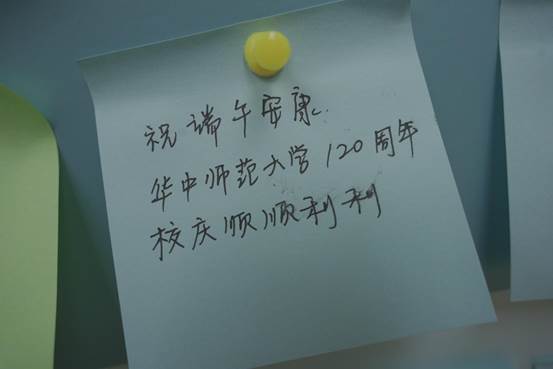 祝端午安康.
华中师范大学120周年
校庆顺顺利利